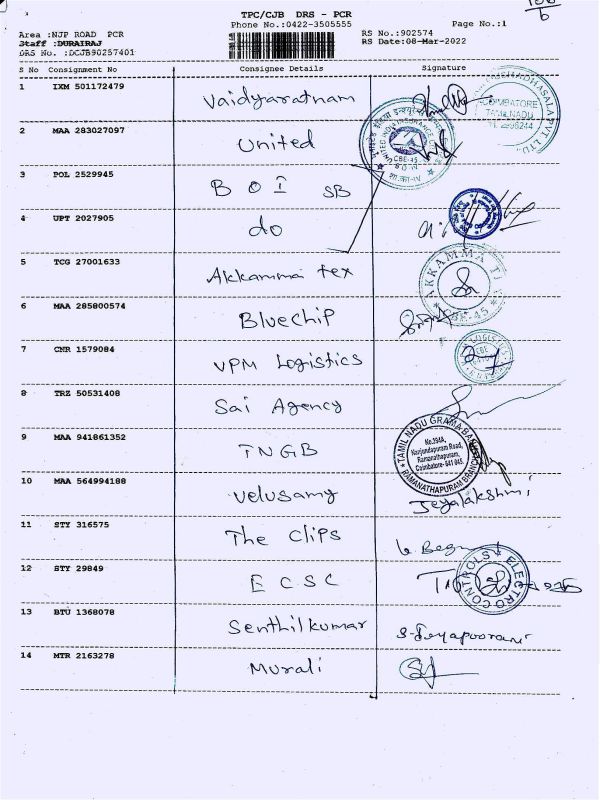 TPC/CJB DRS - PCR
Phone No.:0422-3505555
Page No.:1
Area :NJP ROAD PCR
RS No.:902574
Staff :DURAIRAJ
RS Date:08-Mar-2022
DRS No. :DCJB90257401
S No Consignment No Consignee Details Signature
1 IXM 501172479 Vaidyaratnam
COIMBATORE
TAMILNADU
2 MAA 283027097 United
UNITED INDIA INSURANCE
CBE-45
3 POL 2529945 B O I SB
4 UPT 2027905 do
5 TCG 27001633 Akkamma tex
AKKAMMA T
CBE-45
6 MAA 285800574 Bluechip
7 CNR 1579084 VPM Logistics
LOGISTICS
CBE
8 TRZ 50531408 Sai Agency
9 MAA 941861352 TNGB
TAMIL NADU GRAMA BANK
No.394A,
Nanjundapuram Road,
Ramanathapuram,
Coimbatore- 641 045
RAMANATHAPURAM BRANCH
10 MAA 564994188 Velusamy Jeyalakshmi
11 STY 316575 The Clips
12 STY 29849 E C S C
ELECTRO CONTROLS
13 BTU 1368078 Senthilkumar S-Jeyapoorani
14 MTR 2163278 Murali